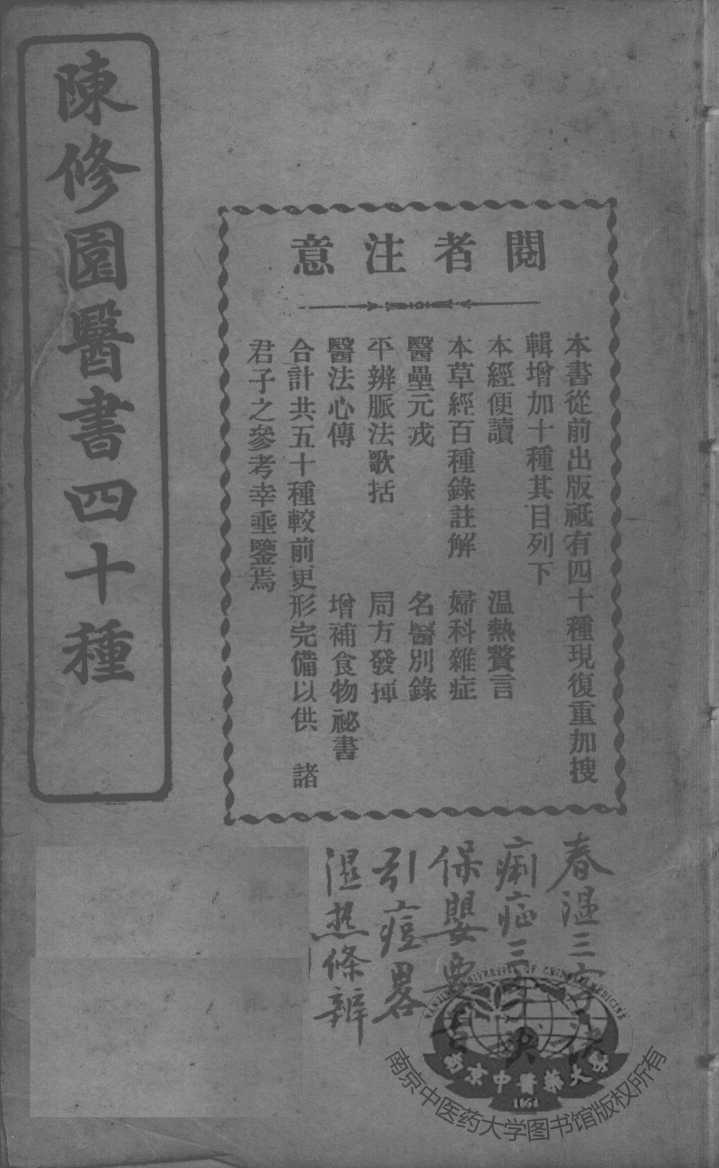 陳修園醫書四十種
閱者注意
本書從前出版祇有四十種現復重加搜
輯增加十種其目列下
本經便讀　温熱贅言
本草經百種錄註解　婦科雜症
醫壘元戎　名醫別錄
平辨脈法歌括　局方發揮
醫法心傳　增補食物祕書
合計共五十種較前更形完備以供　諸
君子之參考幸垂鑒焉
春温三字
痢症三字訣
保嬰要言
引痘畧
湿热條辨
NANJING UNIVERSITY OF CHINESE MEDICINE
南京中醫藥大學
1954
南京中医药大学图书馆版权所有